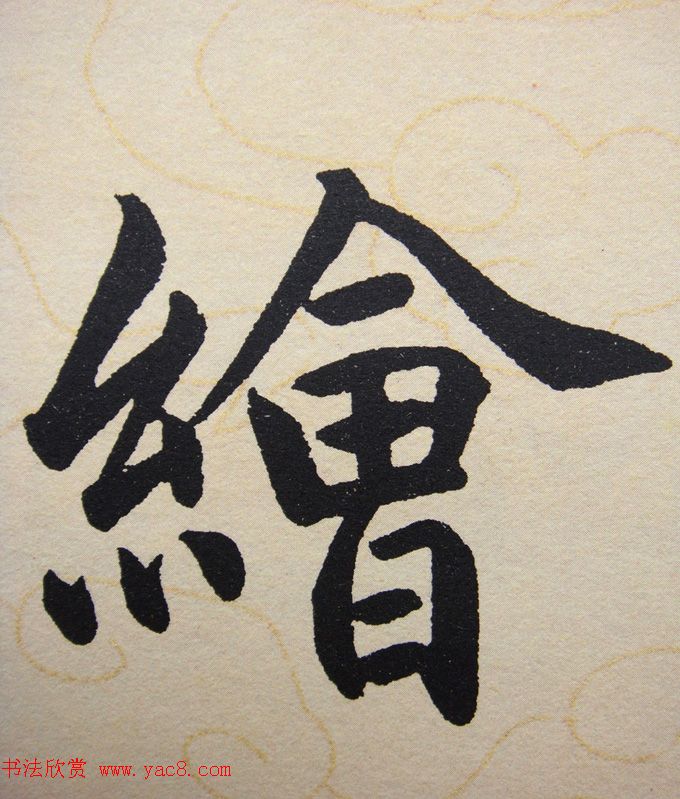 繪
书法欣赏 www.yac8.com